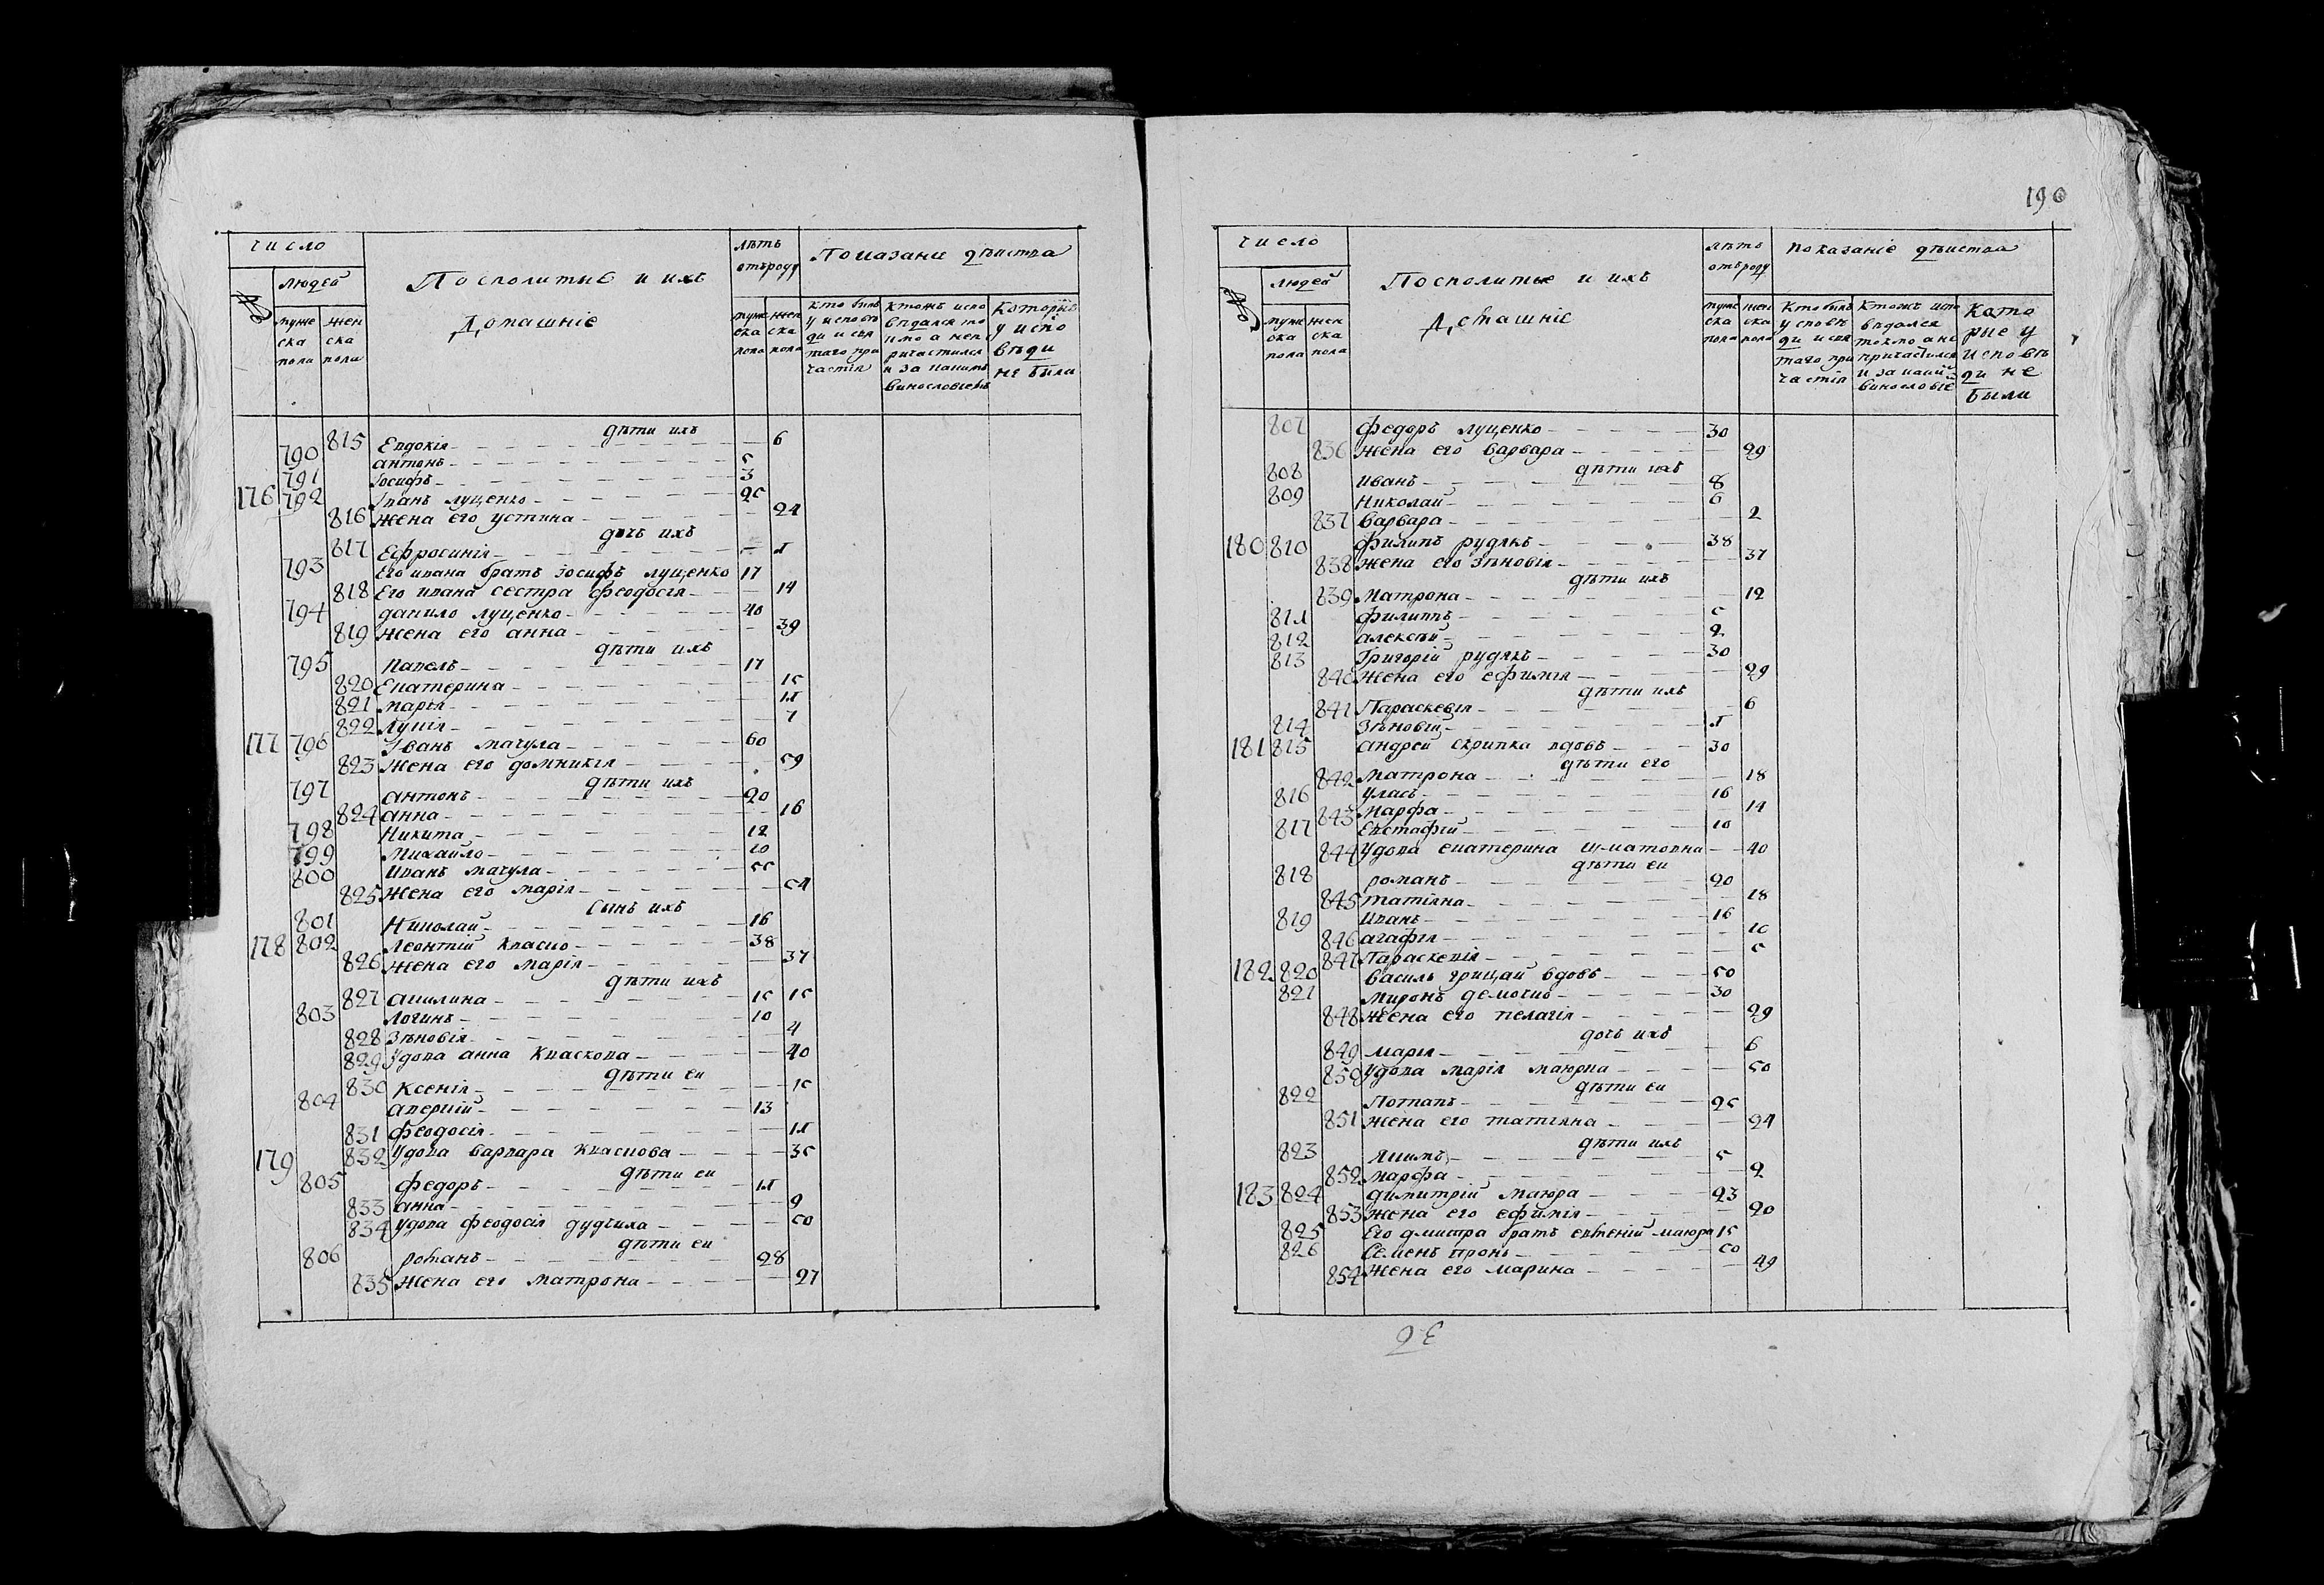 число
людей
муже ска пола
жен ска пола
Посполитые и ихъ
Домашніе
лѣтъ отъроду
муже ска пола
жен ска пола
Показание дѣиства
кто былъ у исповѣди и свѧтаго причастіѧ
Ктожъ исповѣдался токмо а непричастился и за какимъ винословіемъ
Которыѣ у исповѣди не были
дѣти ихъ
815 Евдокіѧ 6
790 антонъ 5
791 Іосифъ 3
176 792 Іванъ луценко 25
816 Жена его устина 24
дочь ихъ
817 Ефросиніѧ 1
793 Его ивана братъ Іосифъ луценко 17
818 Его ивана сестра феодосіѧ 14
794 данило луценко 40
819 Жена его анна 39
дѣти ихъ
795 павелъ 17
820 Екатерина 15
821 марьѧ 11
822 Лукіѧ 7
177 796 Іванъ мачула 60
823 Жена его домникіѧ 59
дѣти ихъ
797 антонъ 20
824 анна 16
798 Никита 12
799 Михайло 10
800 Иванъ мачула 55
825 Жена его маріѧ 54
сынъ ихъ
801 Николай 16
178 802 Леонтій Кваско 38
826 Жена его маріѧ 37
дѣти ихъ
827 акилина 15 15
803 Логинъ 10
828 Зѣновіѧ 4
829 Удова анна Кваскова 40
дѣти еи
830 Ксеніѧ 15
804 аверкій 13
831 феодосіѧ 11
179 832 Удова варвара Кваскова 35
дѣти еи
805 федоръ 11
833 анна 9
834 Удова феодосіѧ дудчиха 50
дѣти еи
806 романъ 28
835 Жена его матрона 27
190
число
людей
муже ска пола
жен ска пола
Посполитые и ихъ
Домашніе
лѣтъ отъроду
муже ска пола
жен ска пола
показаніе дѣиства
Кто былъ у споведи и свѧтаго причастіѧ
Ктожъ исповѣдалсѧ токмо а не причастился и за какимъ винословіе
Которые у исповѣди не были
807 федоръ луценко 30
836 Жена его варвара 29
дѣти ихъ
808 иванъ 8
809 Николай 6
837 варвара 2
180 810 филипъ рудѧкъ 38
838 Жена его зѣновіѧ 37
дѣти ихъ
839 Матрона 12
811 филиппъ 5
812 алексѣй 2
813 Григорій рудѧкъ 30
840 Жена его ефиміѧ 29
дѣти ихъ
841 Параскевіѧ 6
814 Зѣновій 1
181 815 андрей скрипка вдовъ 30
дѣти его
842 Матрона 18
816 Уласъ 16
843 Марфа 14
817 Евстафій 10
844 Удова екатерина шматовна 40
дѣти еи
818 романъ 20
845 татіѧна 18
819 Иванъ 16
846 агафіѧ 10
847 Параскевіѧ 5
182 820 василь грицай вдовъ 50
821 миронъ демочко 30
848 Жена его пелагіѧ 29
дочь ихъ
849 марьѧ 6
850 Удова маріѧ маюрка 50
дѣти еи
822 Потапъ 25
851 Жена его татіѧна 24
дѣти ихъ
823 Якимъ 5
852 марфа 2
183 824 димитрій маюра 23
853 Жена его ефиміѧ 20
825 Его дмитра братъ евгеній маюра 15
826 Семенъ пронь 50
854 Жена его марина 49